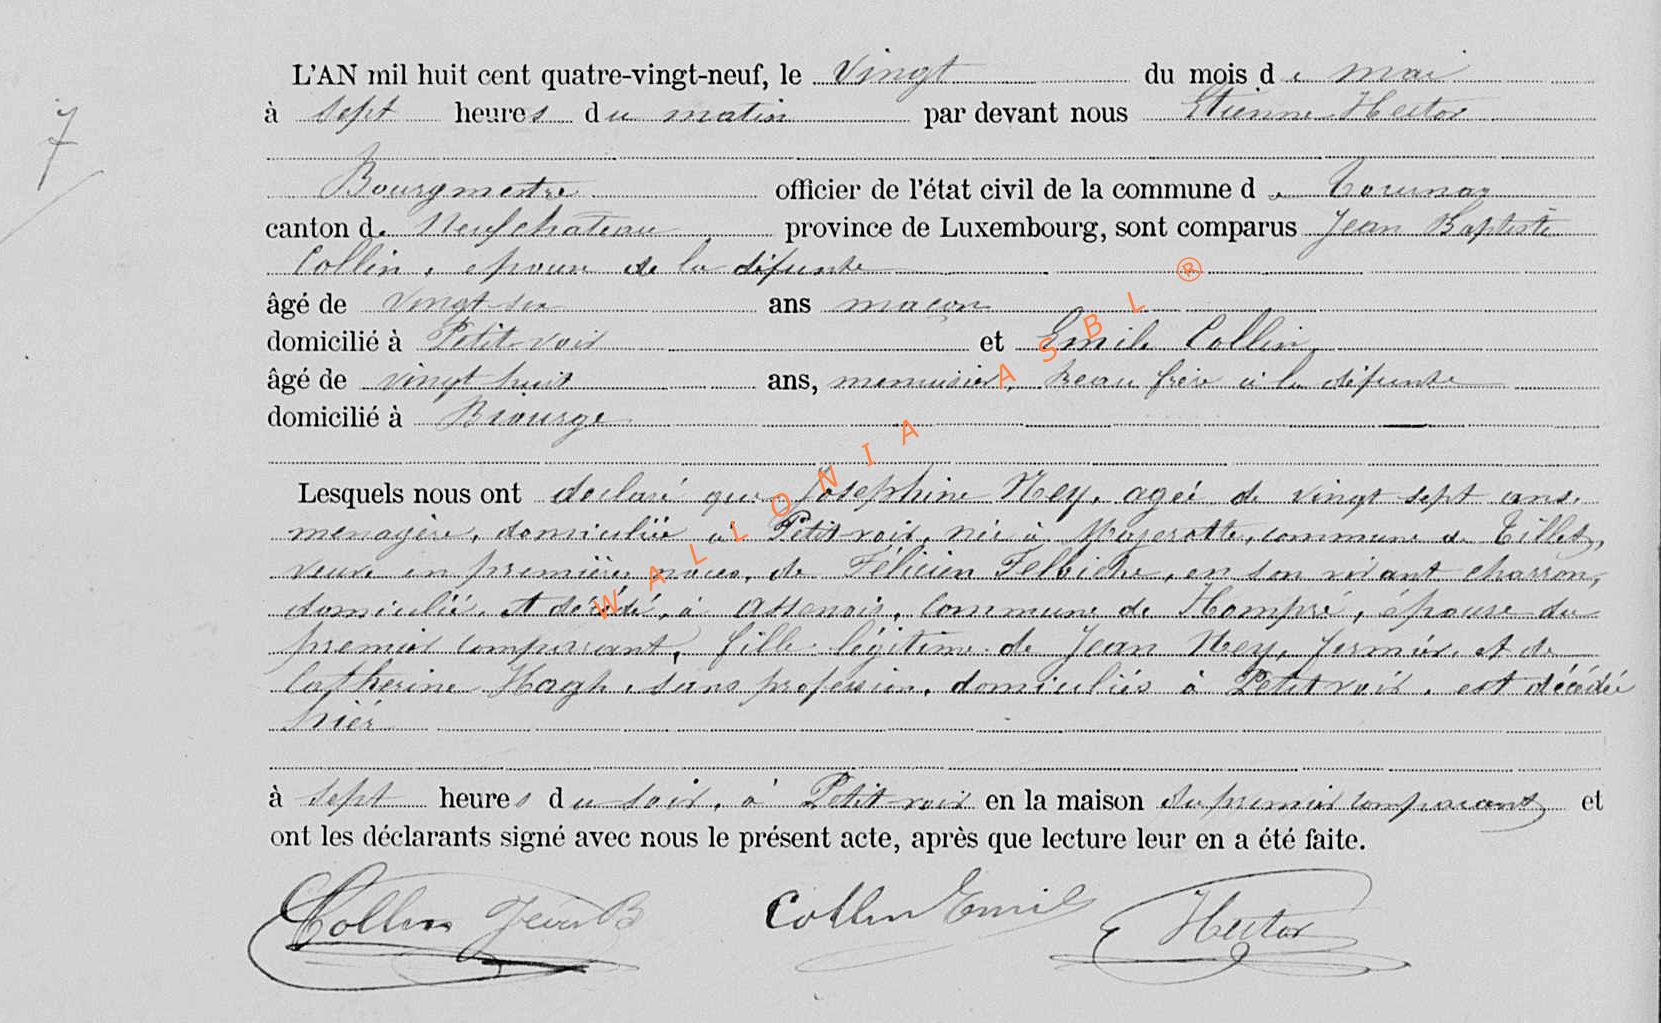 L'AN mil huit cent quatre-vingt-neuf, le Vingt du mois de mai
7
à sept heures du matin par devant nous Etienne Hector
Bourgmestre officier de l'état civil de la commune de Tournay
canton de Neufchateau province de Luxembourg, sont comparus Jean Baptiste
Collin, epoux de la défunte
âgé de vingt-six ans maçon
domicilié à Petitvoir et Emile Collin,
âgé de vingt huit ans, menuisier, beau frère à la défunte
domicilié à Biourge
Lesquels nous ont declaré que Joséphine Ney, agée de vingt sept ans,
menagère, domiciliée à Petitvoir, née à Magerotte, commune de Tillet,
veuve en premières noces, de Félicien Feloiche, en son vivant charron,
domicilié, et décédé, à Assenois, Commune de Hompré, épouse du
premier comparant, fille légitime de Jean Ney, fermier, et de
Catherine Hagh, sans profession, domiciliés à Petitvoir, est décédée
hier
à sept heures du soir, à Petitvoir en la maison du premier comparant et
ont les déclarants signé avec nous le présent acte, après que lecture leur en a été faite.
Collin Jean B Collin Emile Hector
WALLONIA ASBL ®